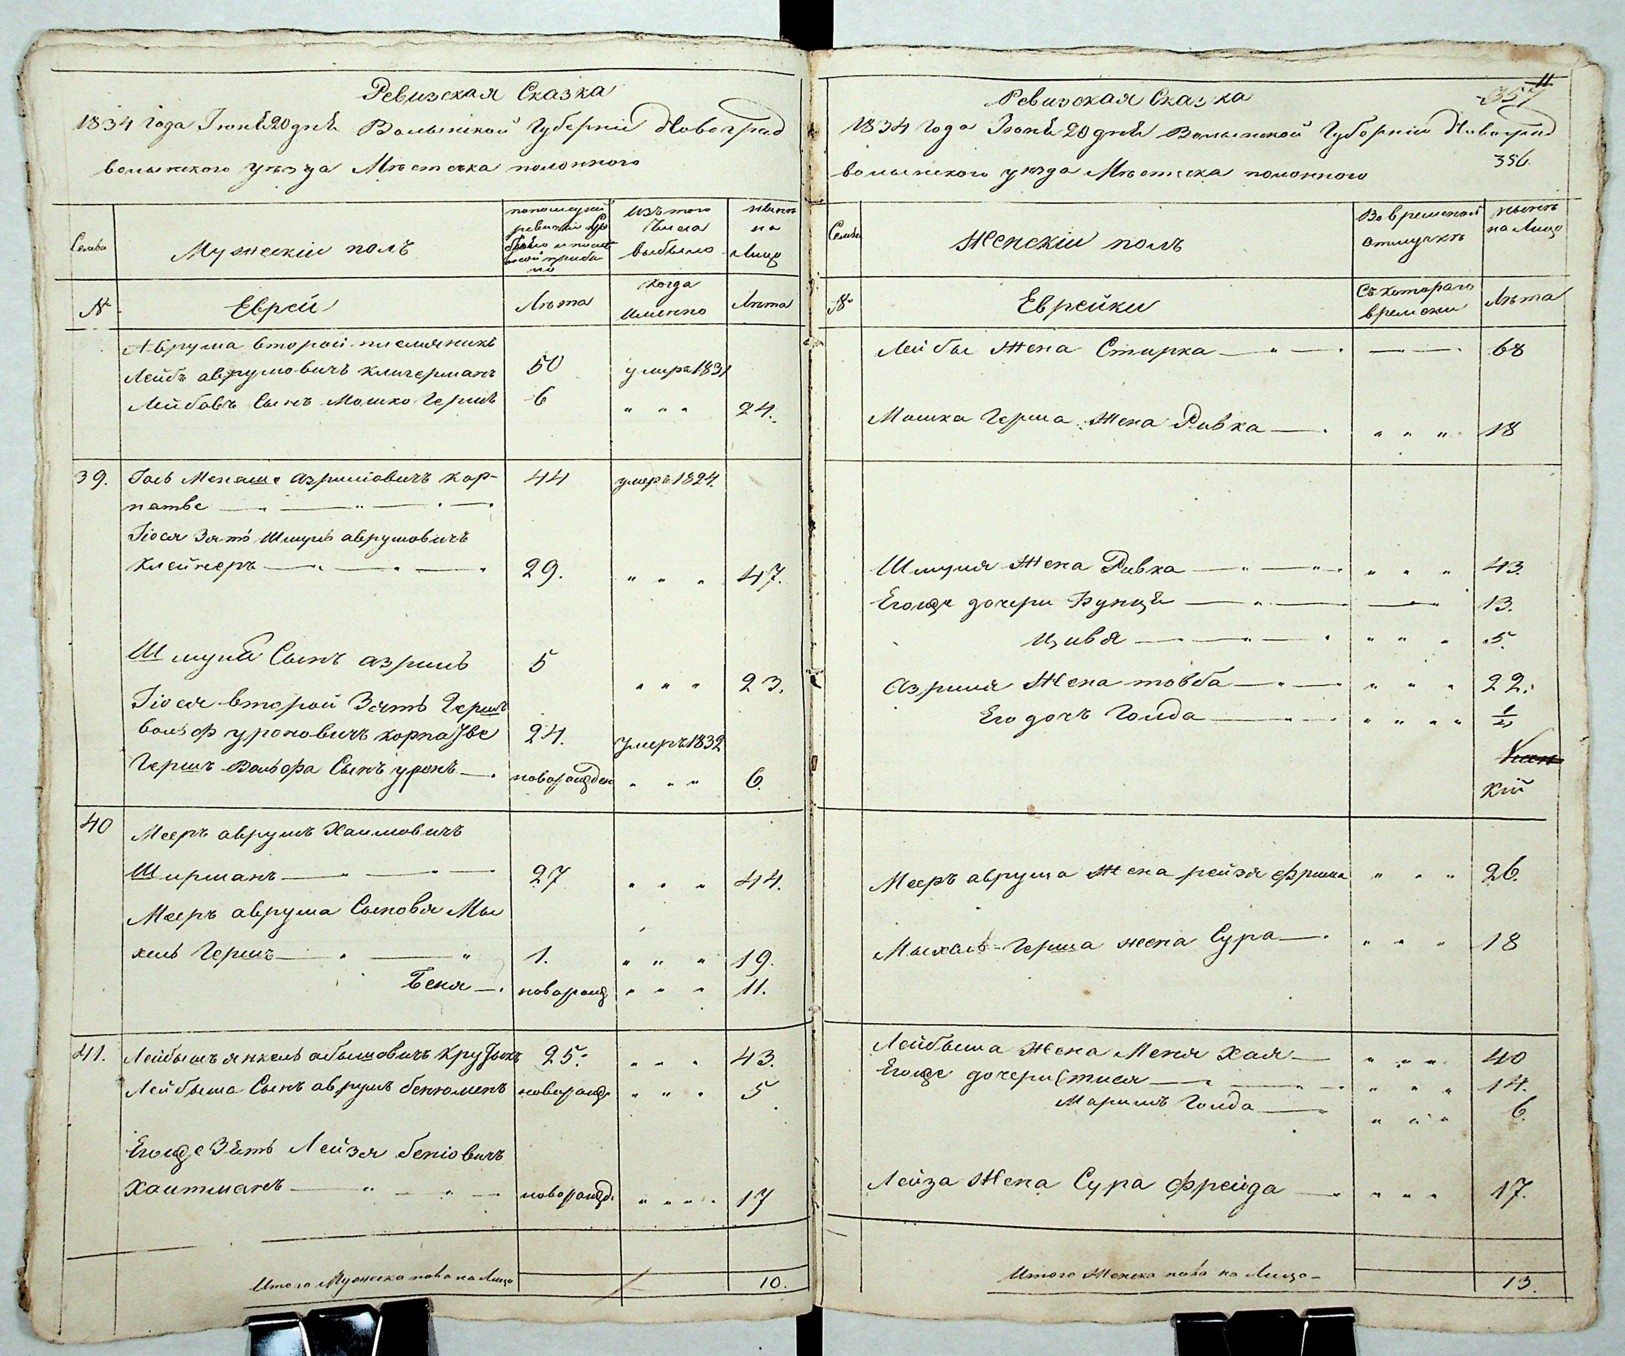 Ревизская Сказка
1834 года Іюня 20 дня Волынской Губерніи Новоград
волынского уезда Мѣстечка полонного
Семьи
Мужескій полъ
по последней
ревизіи
Изъ того
Числа
выбыло
нынѣ
на
Лицо
№
Еврей
Лѣта
Когда
имянно
Лѣта
Аврума второй племяникъ
Лейбъ аврумовичъ клигерманъ 50 умеръ 1831
Лейбовъ Сынъ Мошко Гершъ 6 " " " 24.
39. Іось Менаше азриліовичъ кор- 44 умеръ 1824.
Іося Зять Шмулъ аврумовичъ
Клейнеръ 29. " " " 47.
Шмуля Сынъ азриль 5 " " " 23.
Іося второй Зять Гершъ
вольф уроновичъ 24. умеръ 1832
Гершъ Вольфа Сынъ уронъ новорожден " " " 6.
40 Мееръ аврумъ Хаимовичъ
Ширманъ 27 " " " 44.
Мееръ аврума Сыновя Мы
хель Гершъ 1. " " " 19.
Беня новорожд " " " 11.
41. Лейбышъ янкель абышовичъ 25. " " " 43.
Лейбыша Сынъ аврумъ бенюминъ новорожд. " " " 5.
Егожде Зять Лейзя беніовичъ
Хаитманъ новорожд. " " " " 17
Итого Мужеска пола на Лицо 10.
11
357
Ревизская Сказка
1834 Года Іюня 20 дня Волынской Губерніи Новоград
356.
волынского уезда Мѣстечка полонного
Семьи
Женскій полъ
Во временной
отлучкѣ
нынѣ
на Лицо
№
Еврейки
Съ котораго
времени
Лѣта
Лейбы Жена Стирка 68
Мошка Герша Жена Ривка " " " 18
Шмуля Жена Ривка " " " 43.
Егожде дочери Бунця 13.
Цивя " " " 5.
Азриля Жена товба " " " 22.
Его дочъ Голда " " " "
кій
Мееръ аврума Жена рейзя фрима " " " 26.
Мыхаль-Герша жена Сура " " " 18
Лейбыша Жена Меня Хая " " " 40
Егожде дочери " " " 14.
Маримъ Голда " " " 6.
Лейза Жена Сура фрейда " " " 17.
Итого Женска пола на Лицо 13.